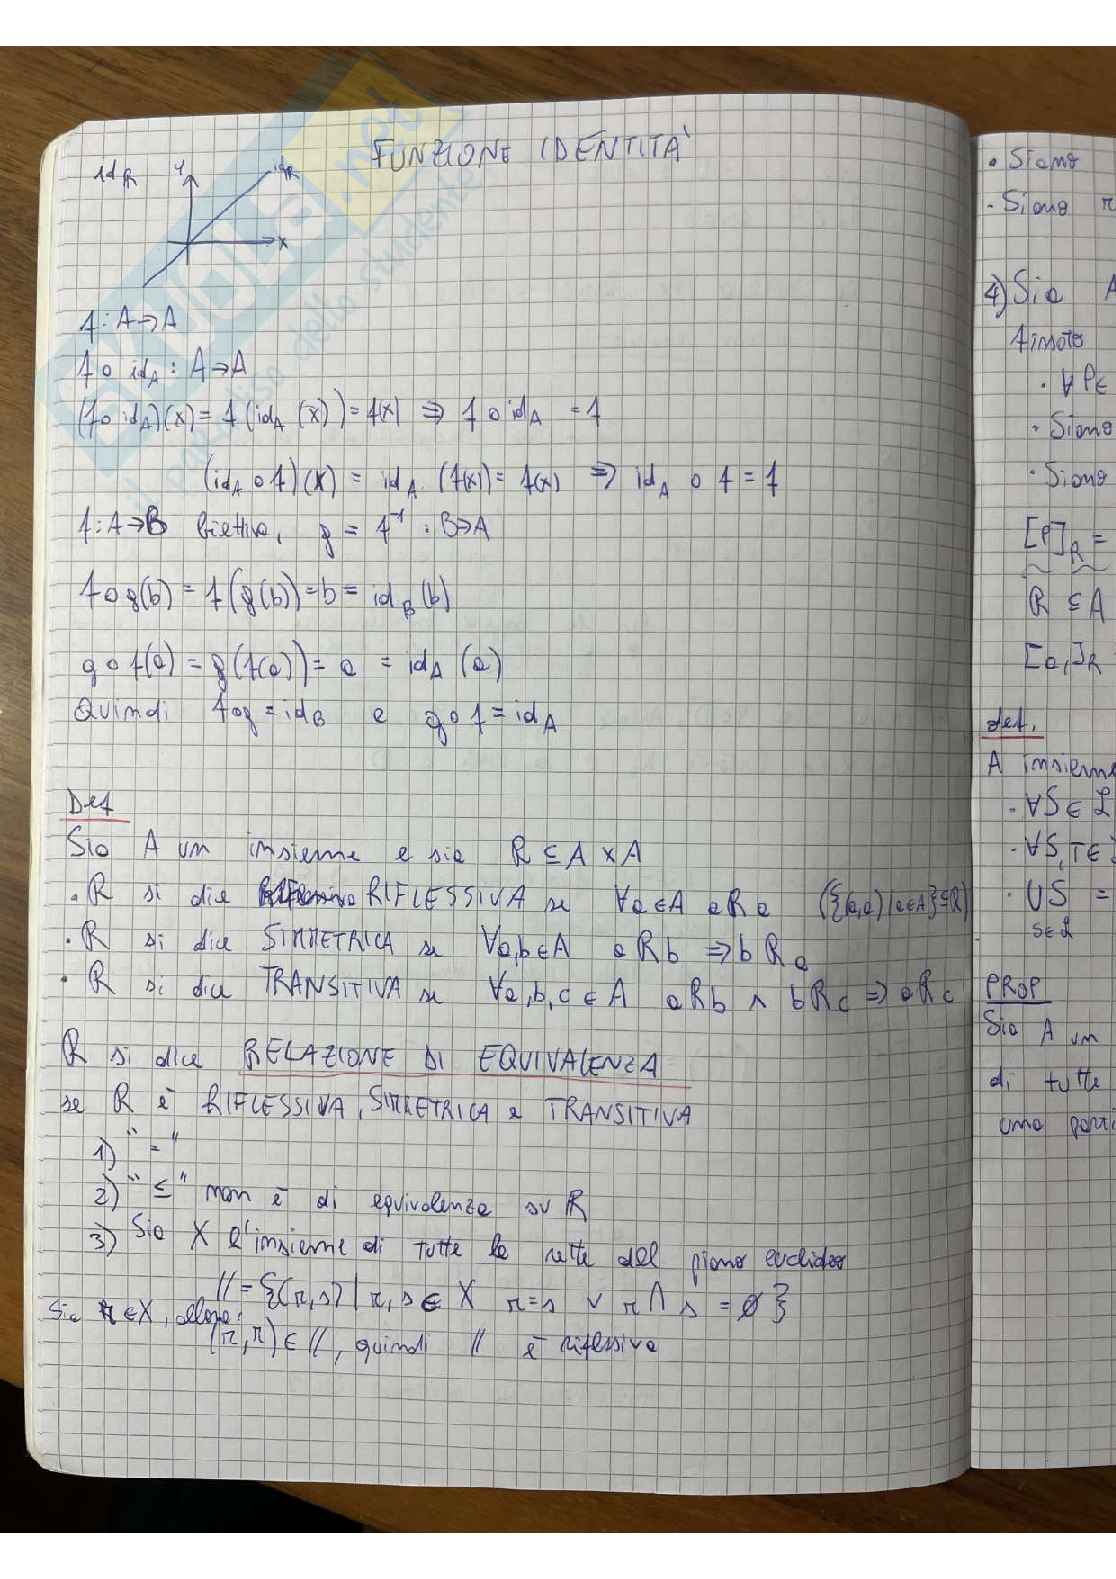 FUNZIONE IDENTITÀ
idR
y
idR
x
f: A→A
f o idA : A→A
(f o idA)(x) = f(idA (x)) = f(x) ⇒ f o idA = f
(idA o f)(x) = idA (f(x)) = f(x) ⇒ idA o f = f
f: A→B biettiva, g = f⁻¹ : B→A
f o g(b) = f(g(b)) = b = idB (b)
g o f(a) = g(f(a)) = a = idA (a)
Quindi f o g = idB e g o f = idA
Def
Sia A un insieme e sia R ⊆ A x A
• R si dice RIFLESSIVA se ∀a∈A aRa ({(a,a) | a∈A} ⊆ R)
• R si dice SIMMETRICA se ∀a,b∈A aRb ⇒ bRa
• R si dice TRANSITIVA se ∀a,b,c ∈ A aRb ∧ bRc ⇒ aRc
R si dice RELAZIONE DI EQUIVALENZA
se R è RIFLESSIVA, SIMMETRICA e TRANSITIVA
1) "="
2) "≤" non è di equivalenza su R
3) Sia X l'insieme di tutte le rette del piano euclideo
// = {(r,s) | r,s ∈ X r=s ∨ r∩s = ∅}
Sia r∈X, allora:
(r,r) ∈ //, quindi // è riflessiva
• Siano
• Siano r
4) Sia A
fissato
• ∀P∈
• Siano
• Siano
[P]R =
R ⊆ A
[a,]R
def.
A insieme
• ∀S ∈ L
• ∀S,T∈
• US =
S∈L
PROP
Sia A un
di tutte
una